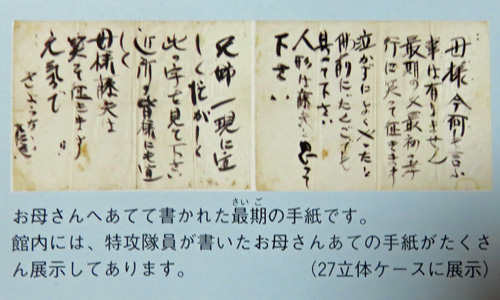 母様今何も言ふ
事は有りません
最期の又最初の孝
行に笑って征きます
泣かずによくやったと
佛前にだんごでも
具へて下さい
人形は藤夫と思って
下さい
兄姉一現に宜
しく忙がしく
此の字で見て下さい
近所の皆様にも宜
しく
母様藤夫は
笑って征きます
元気で
さようなら
お母さんへあてて書かれた最期の手紙です。
館内には、特攻隊員が書いたお母さんあての手紙がたくさ
ん展示してあります。 (27立体ケースに展示)